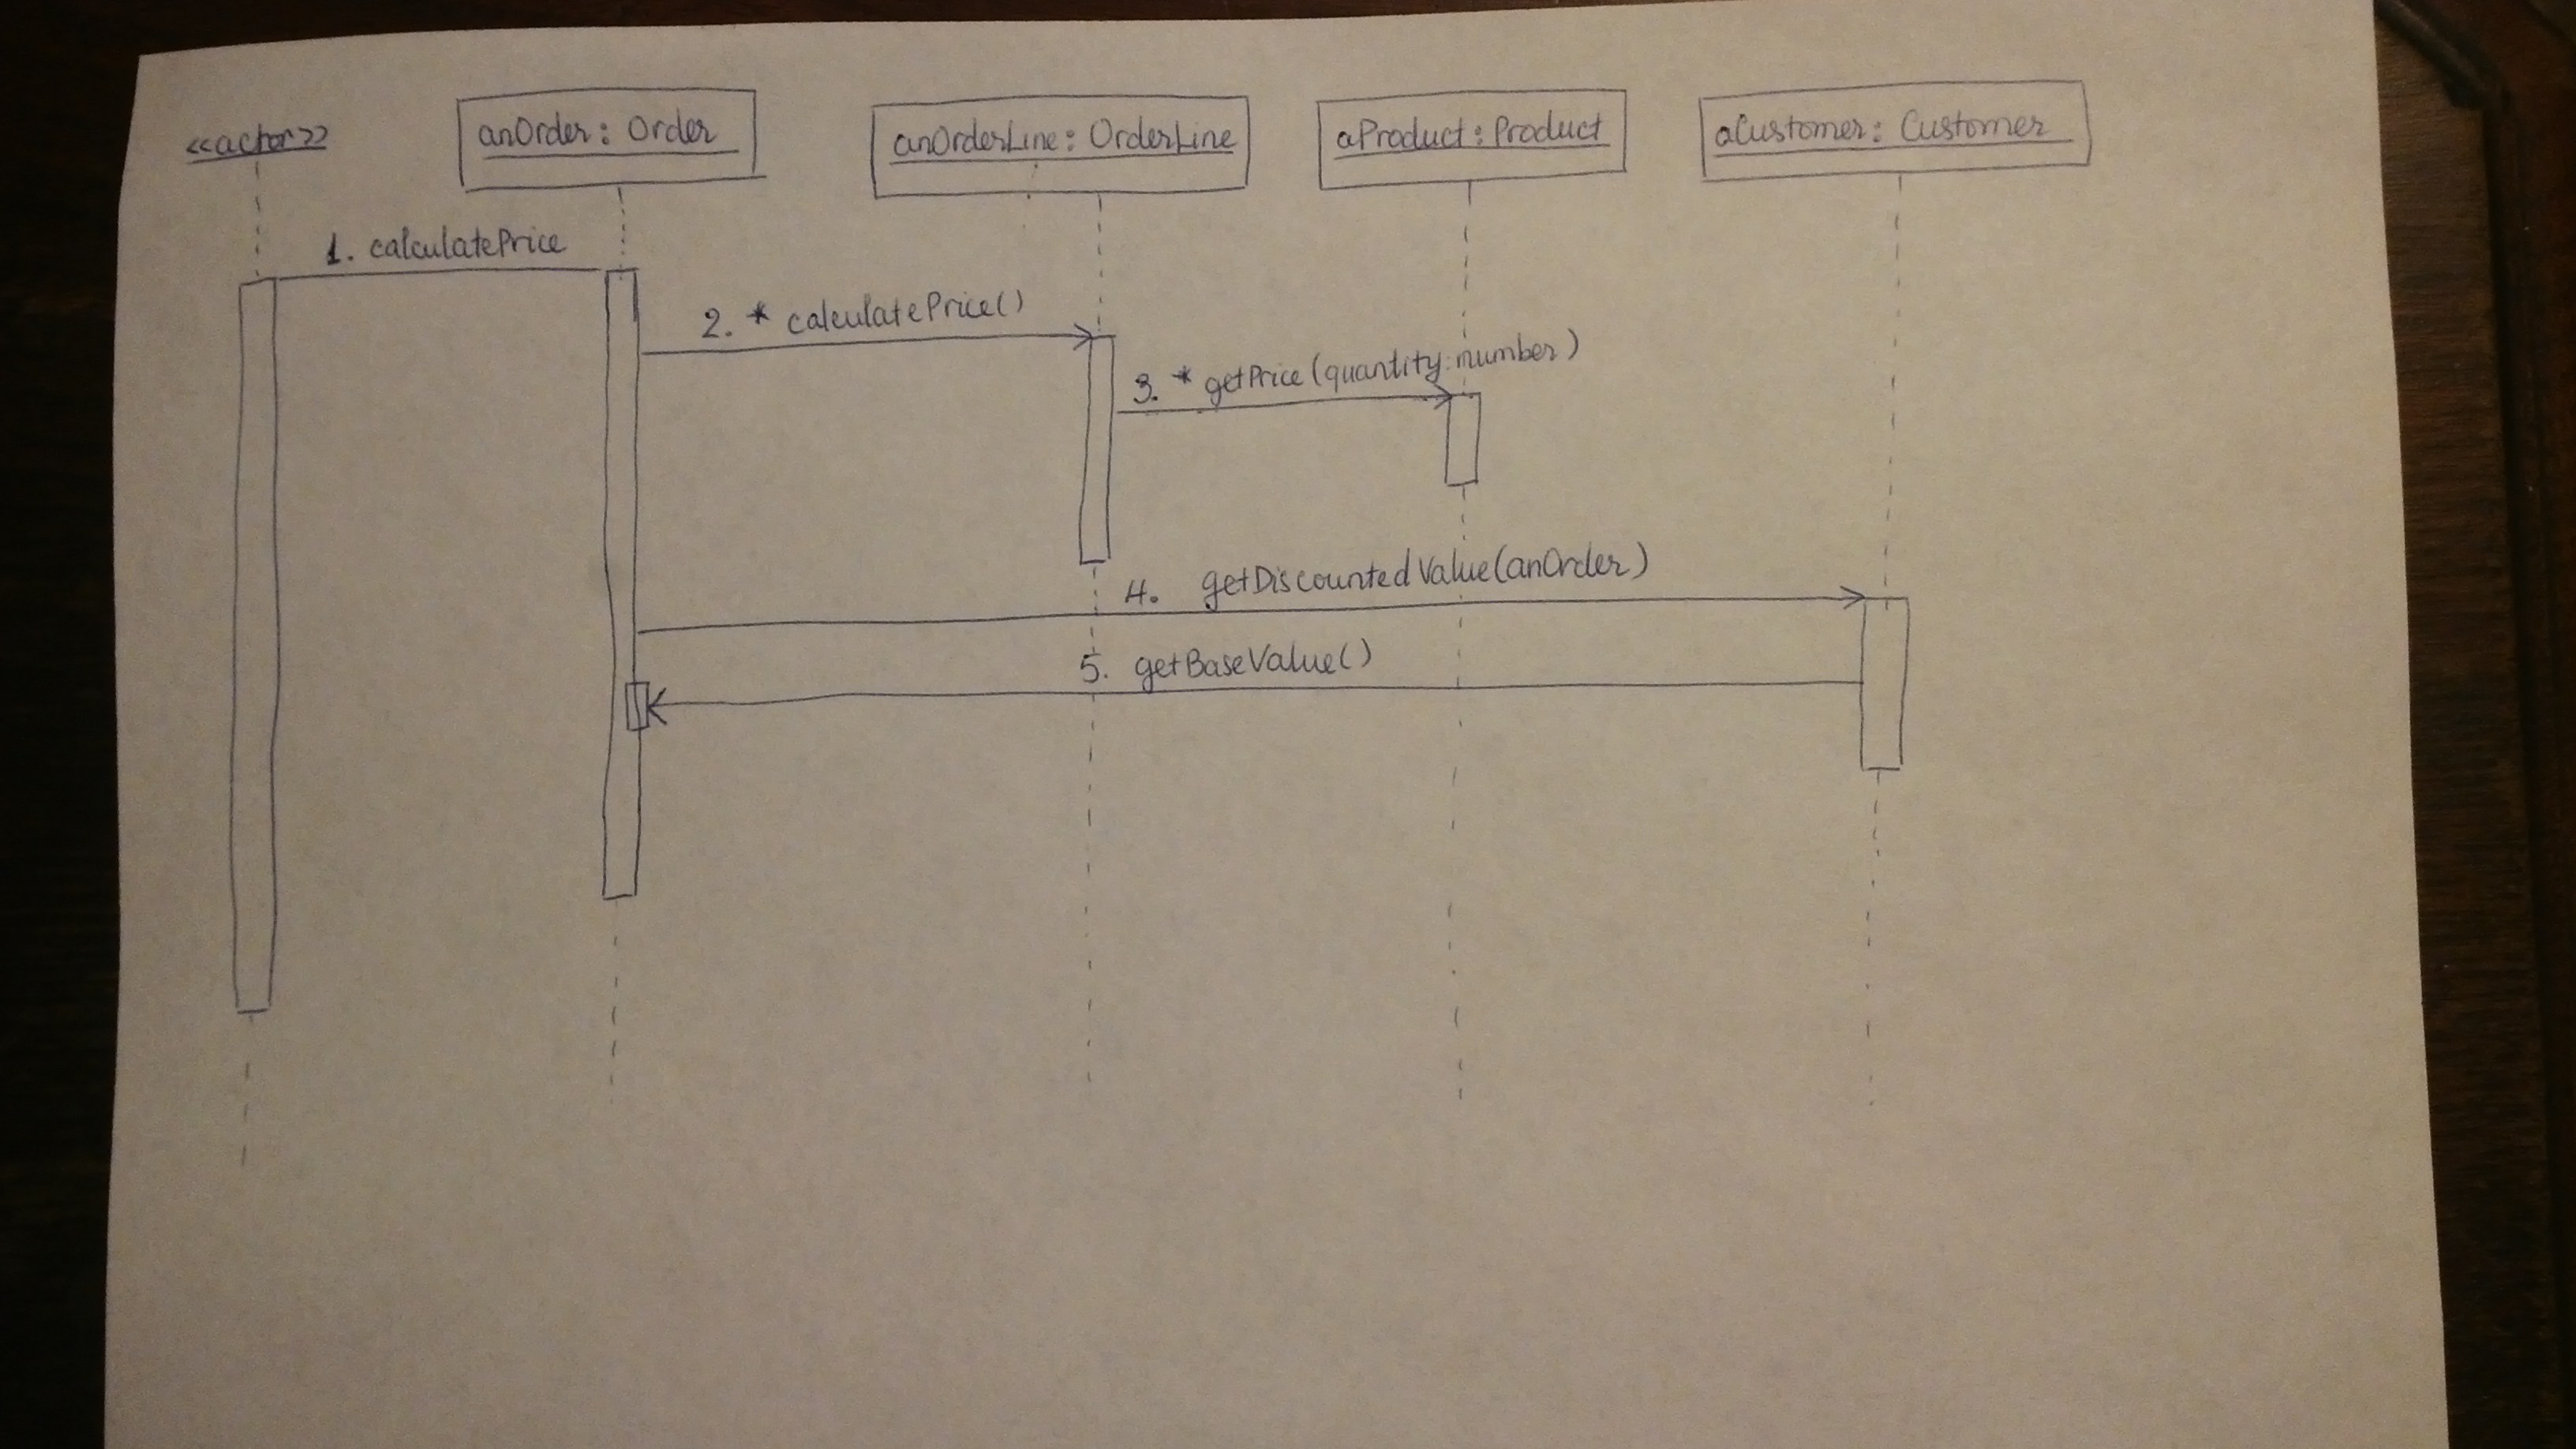 <<actor>>
anOrder: Order
anOrderLine: OrderLine
aProduct: Product
aCustomer: Customer
1. calculatePrice
2. * calculatePrice()
3. * getPrice (quantity: number)
4. getDiscountedValue(anOrder)
5. getBaseValue()